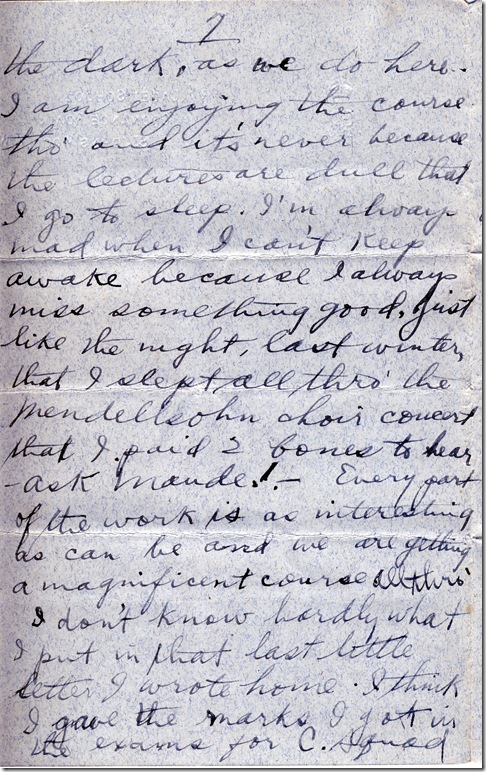 7
the dark, as we do here.
I am enjoying the course
tho' and it's never because
the lectures are dull that
I go to sleep. I'm always
mad when I can't keep
awake because I always
miss something good, just
like the night, last winter,
that I slept all thro' the
Mendellsohn choir concert
that I paid 2 bones to hear
- ask Maude! - Every part
of the work is as interesting
as can be and we are getting
a magnificent course all thro'
I don't know hardly what
I put in that last little
letter I wrote home. I think
I gave the marks I got in
the exams for C. Squad